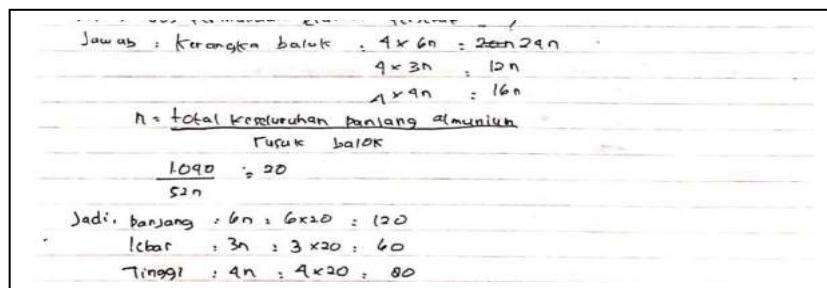 Jawab : Kerangka balok : 4 x 6n : 24n
4 x 3n : 12n
4 x 4n : 16n
n = total keseluruhan panjang almuniun
rusuk balok
1.040 : 20
52n
Jadi, panjang : 6n : 6x20 : 120
lebar : 3n : 3 x20 : 60
Tinggi : 4n : 4x20 : 80